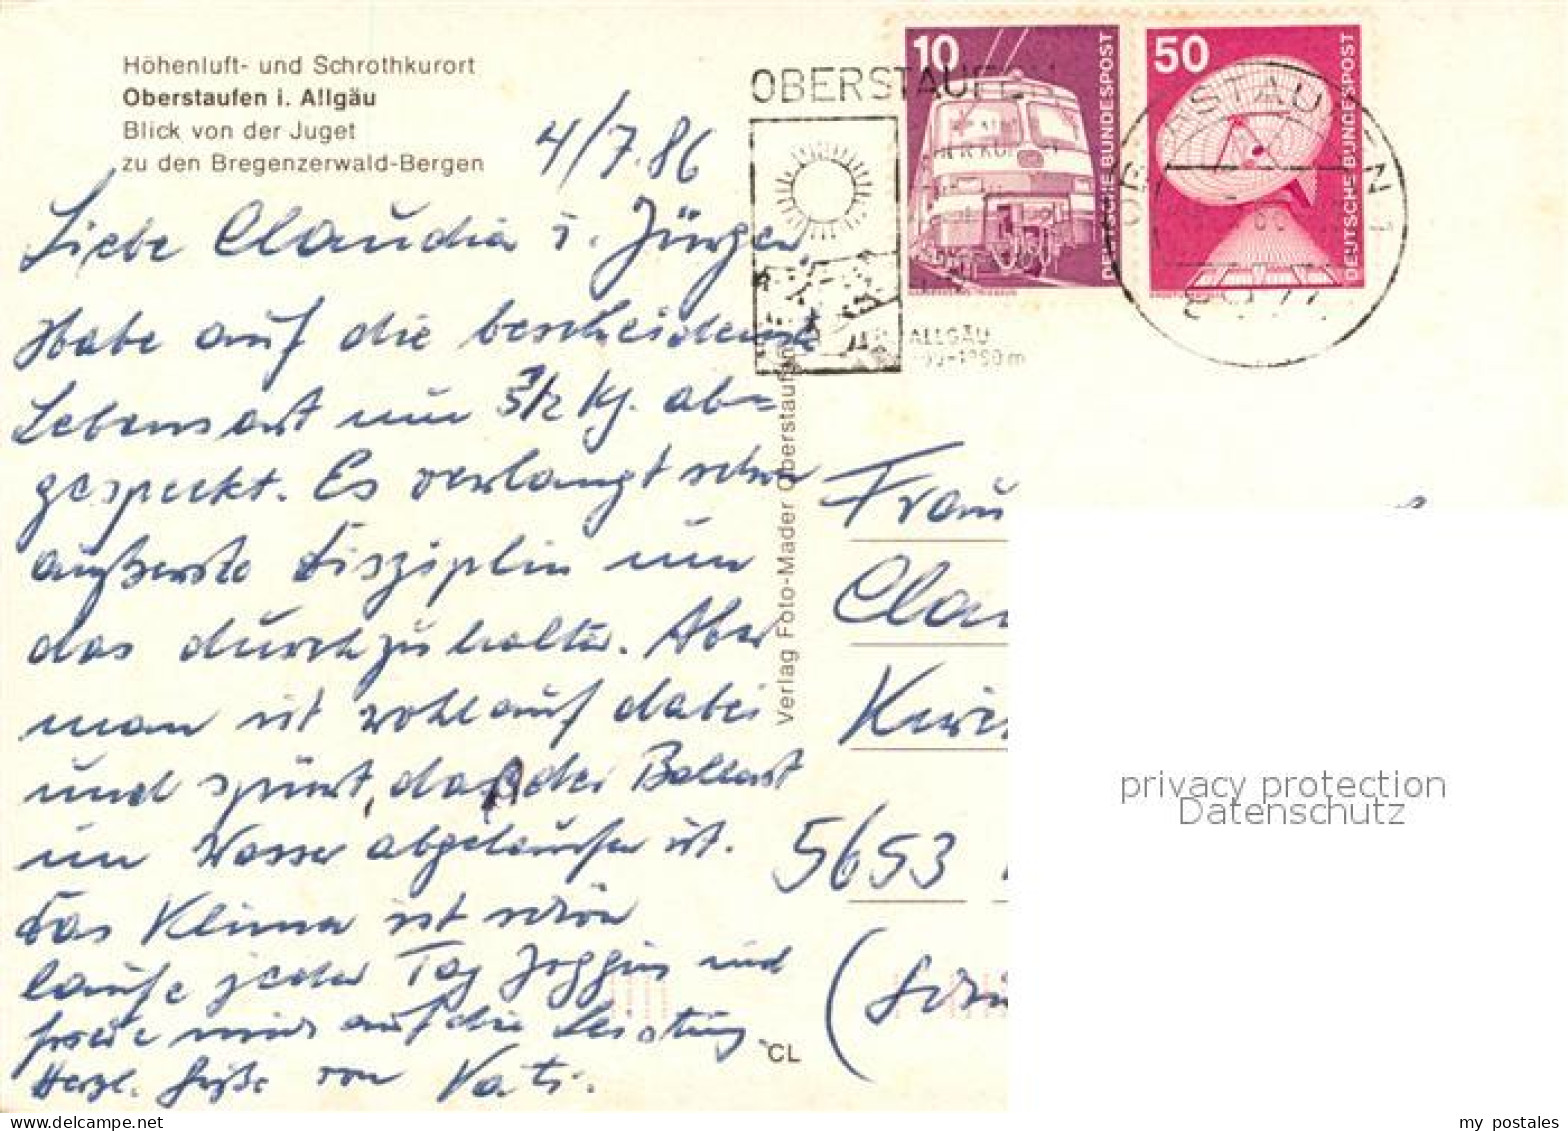 Höhenluft- und Schrothkurort
Oberstaufen i. Allgäu
Blick von der Juget
zu den Bregenzerwald-Bergen
4/7.86
OBERSTAUFEN
10
DEUTSCHE BUNDESPOST
50
DEUTSCHE BUNDESPOST
ALLGÄU
Liebe Claudia u. Jürgen,
Habe auf die bescheidenste
Lebensart nun 3 1/2 Kg. ab=
gespeckt. Es verlangt schon
äußerste Disziplin um
das durchzuhalten. Aber
man ist wohlauf dabei
und spürt, daß der Ballast
im Wasser abgelaufen ist.
Das Klima ist schön
laufe jeden Tag Jogging und
freue mich auf die Leistung.
Herzl. Grüße von Vati.
Verlag Foto-Mader Oberstaufen
CL
Frau
5653
privacy protection
Datenschutz
my postales